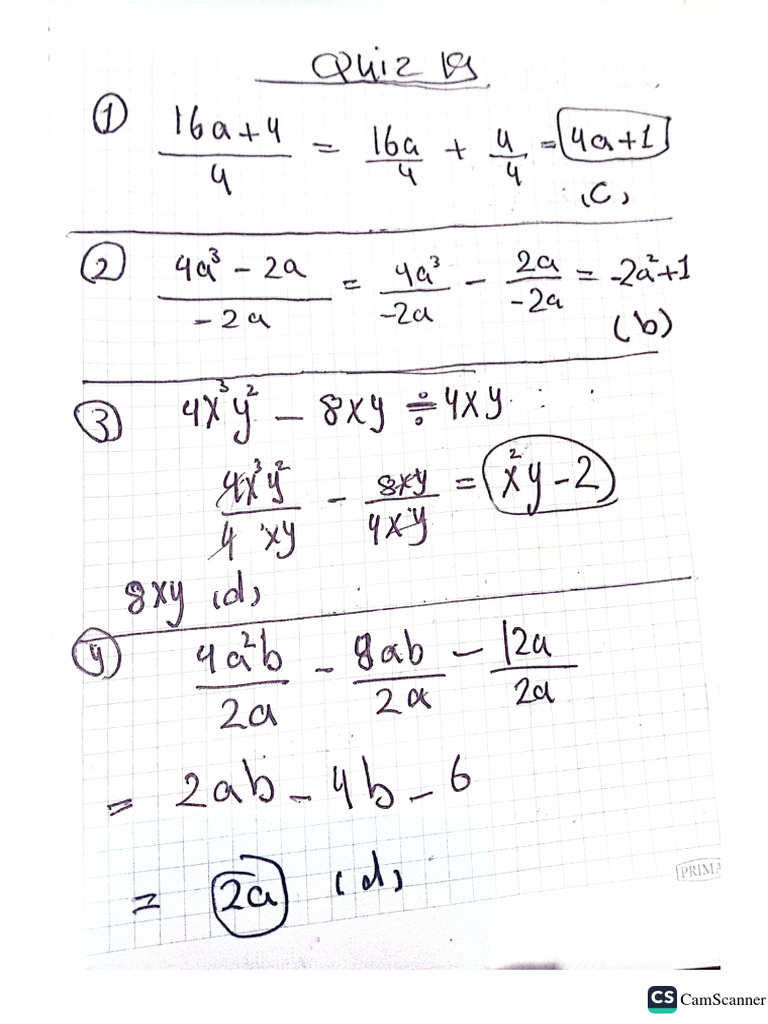 Quiz 19
① (16a+4)/4 = 16a/4 + 4/4 = 4a+1
(C)
② (4a³ – 2a)/(–2a) = 4a³/–2a – 2a/–2a = -2a²+1
(b)
③ 4x³y² – 8xy ÷ 4xy
4x³y²/4xy – 8xy/4xy = x²y – 2
8xy (d)
④ 4a²b/2a – 8ab/2a – 12a/2a
= 2ab – 4b – 6
= 2a (d)
PRIMA
CS CamScanner